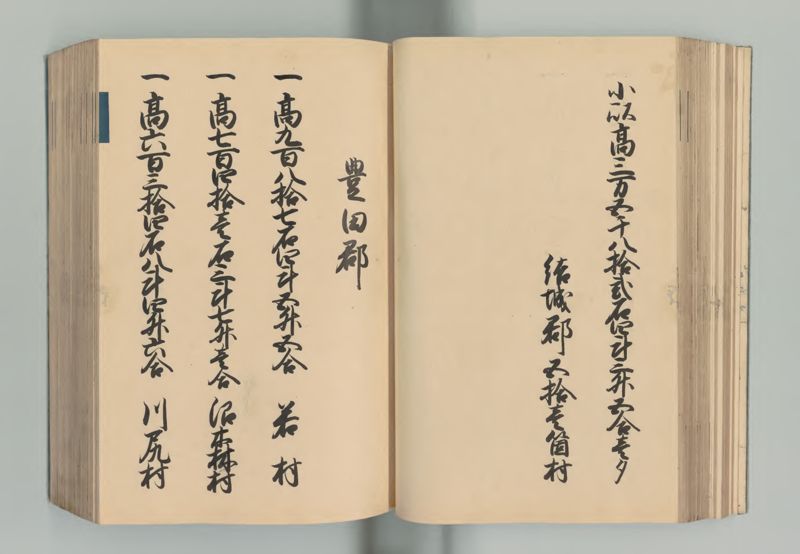 小以高三万五千八拾弐石四斗二升五合壱夕
結城郡五拾壱箇村
豊田郡
一高九百八拾七石四斗五升五合 若村
一高七百四拾壱石二斗七升壱合 沼木林村
一高六百三拾四石八斗四升六合 川尻村